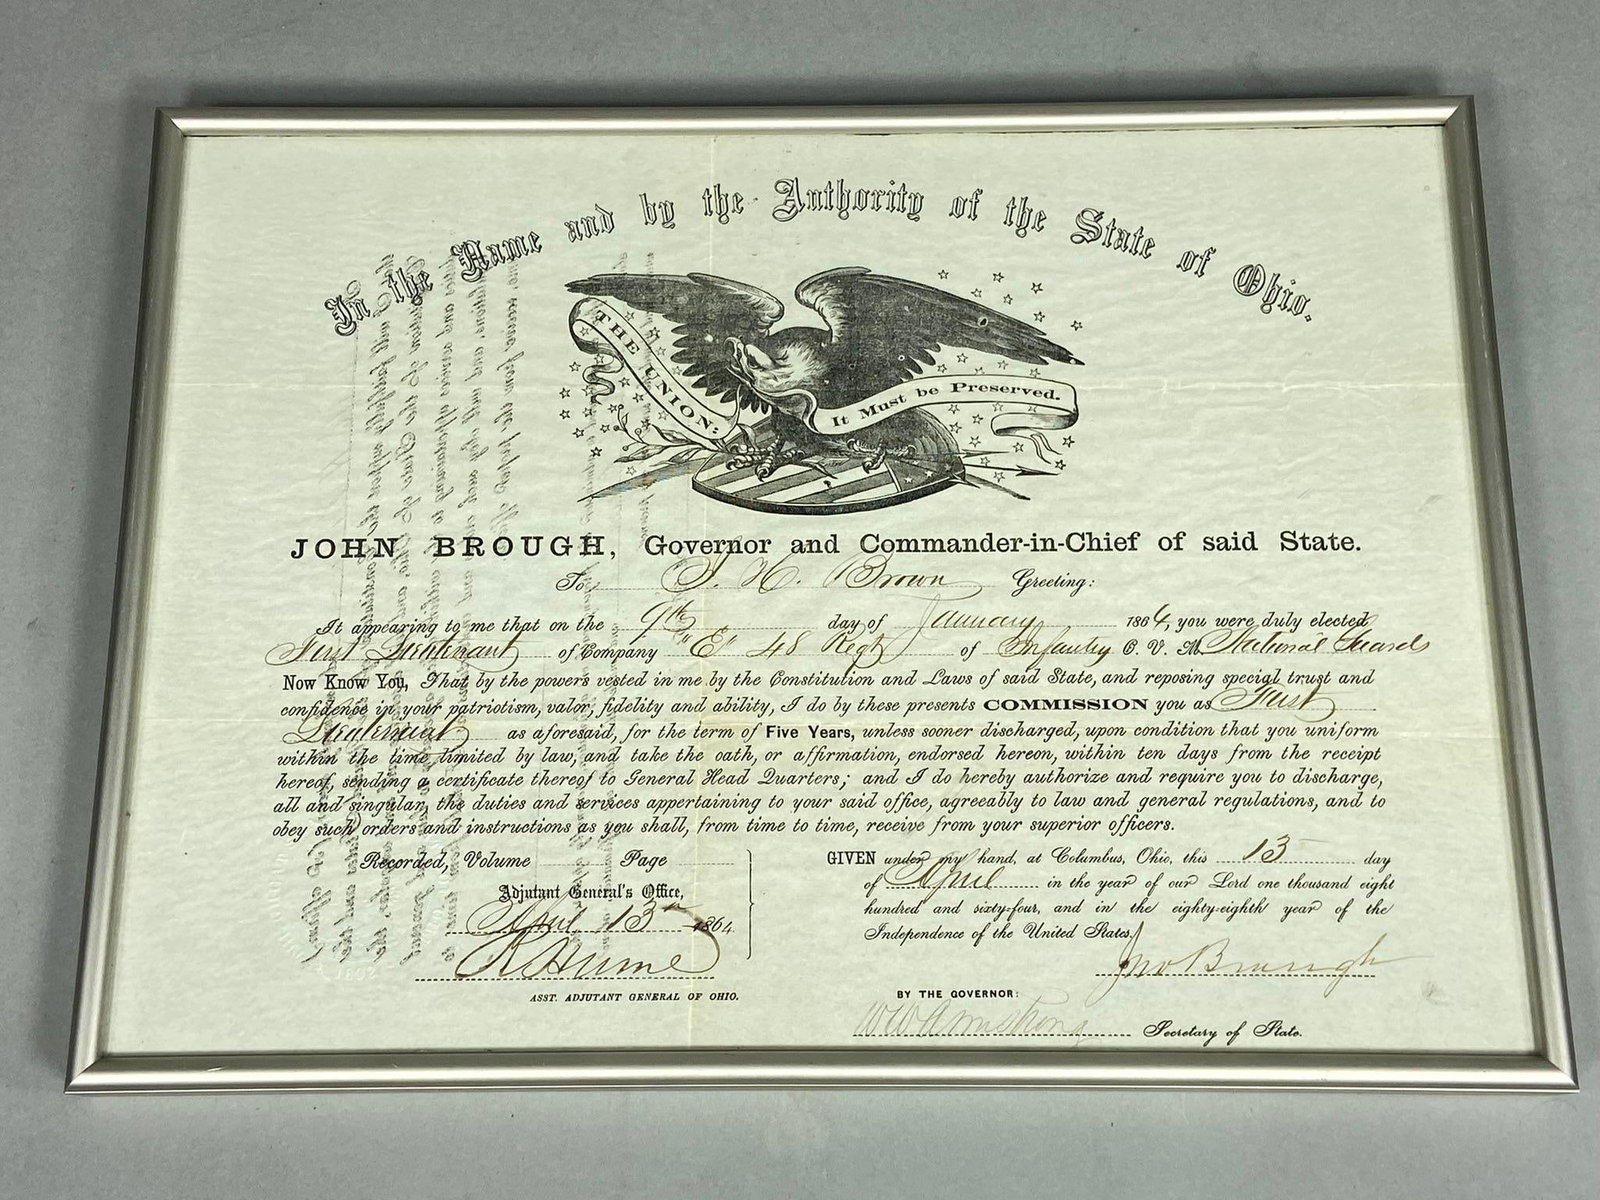 In the Name and by the Authority of the State of Ohio.
THE UNION:
It Must be Preserved.
JOHN BROUGH, Governor and Commander-in-Chief of said State.
To H. Brown Greeting:
It appearing to me that on the 9th day of January 1864, you were duly elected
First Lieutenant of Company "E" 48 Regt of Infantry O. V. M. National Guards
Now Know You, That by the powers vested in me by the Constitution and Laws of said State, and reposing special trust and
confidence in your patriotism, valor, fidelity and ability, I do by these presents COMMISSION you as First
Lieutenant as aforesaid, for the term of Five Years, unless sooner discharged, upon condition that you uniform
within the time limited by law, and take the oath, or affirmation, endorsed hereon, within ten days from the receipt
hereof, sending a certificate thereof to General Head Quarters; and I do hereby authorize and require you to discharge,
all and singular, the duties and services appertaining to your said office, agreeably to law and general regulations, and to
obey such orders and instructions as you shall, from time to time, receive from your superior officers.
Recorded, Volume Page
Adjutant General's Office,
April 13th 1864
ASST. ADJUTANT GENERAL OF OHIO.
GIVEN under my hand, at Columbus, Ohio, this 13 day
of April in the year of our Lord one thousand eight
hundred and sixty-four, and in the eighty-eighth year of the
Independence of the United States.
Jno Brough
BY THE GOVERNOR:
W W Armstrong Secretary of State.